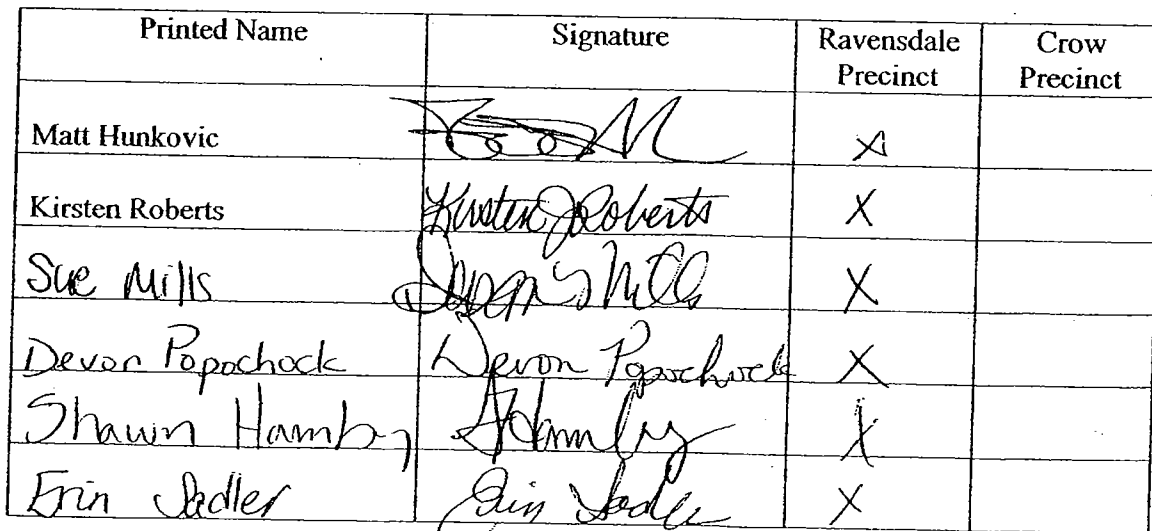 Printed Name Signature Ravensdale Precinct Crow Precinct
Matt Hunkovic X
Kirsten Roberts Kirsten J Roberts X
Sue Mills Mills X
Devon Popochock Devon Popochock X
Shawn Hamby Hamby X
Erin Sadler Erin Sadler X